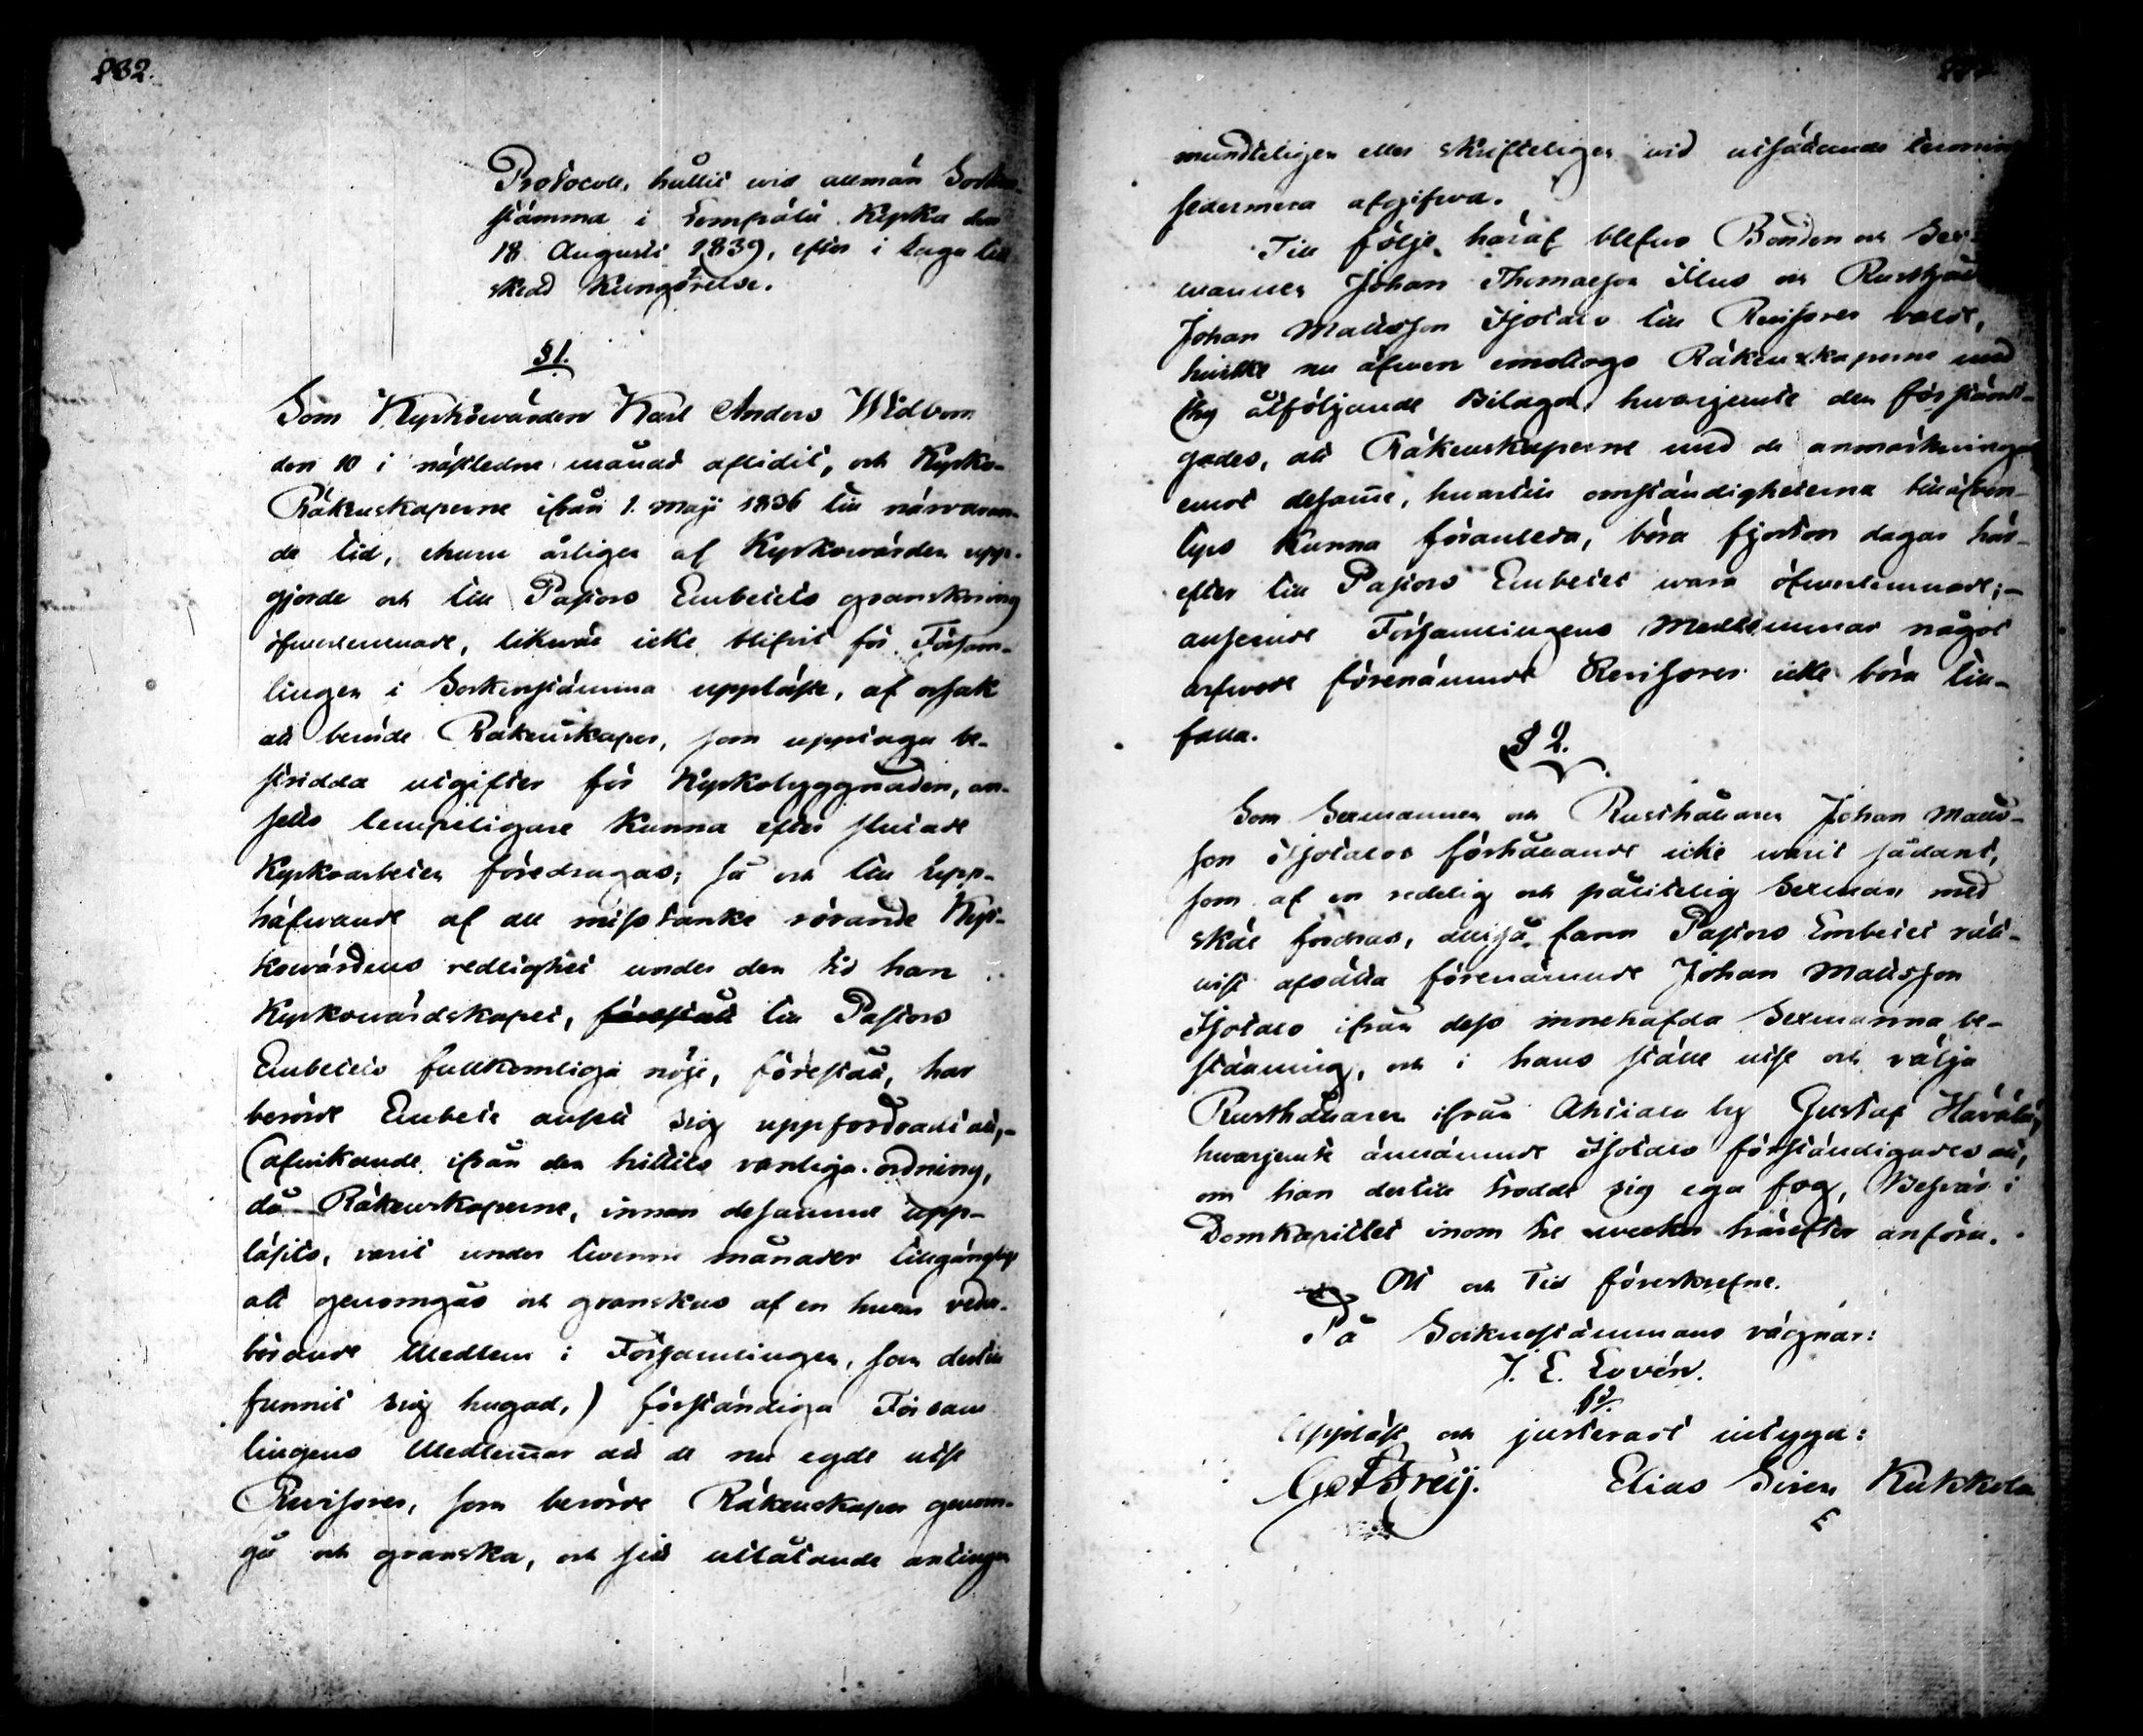 232.
Protocoll, hållit wid allmän Sockne-
stämma i Sempälä Kyrka den
18 Augusti 1839, efter i laga tid
skedd Kungörelse.
§ 1.
Som Kyrkowärden Karl Anders Widbom
den 10 i nästledne månad aflidit, och Kyrko-
Räkenskaperne ifrån 1. Maji 1836 till närvaran-
de tid, ehuru årligen af Kyrkowärden upp-
gjorde och till Pastors Embetets granskning
öfverlemnade, likwäl icke blifvit för Försam-
lingen i Sockenstämma uppläste, af orsak
att berörde Räkenskaper, som upptaga be-
stridda utgifter för Kyrkobyggnaden, an-
setts lempeligare kunna efter slutade
Kyrkoarbeten föredragas; så och till upp-
häfwande af all misstanke rörande Kyr-
kowärdens redlighet under den tid han
Kyrkowärdskapet, förestått till Pastors
Embetets fullkomliga nöje, förestått, har
berörde Embete ansett sig uppfordradt att,-
(afwikande ifrån den hittils vanliga ordning,
då Räkenskaperne, innan desamme upp-
lästs, varit under tvenne månader tillgänglige
att genomgås och granskas af en hwar veder-
börande Medlem i Församlingen, som dertill
funnit sig hugad,) förständiga Försam
lingens Medlemar att de nu egde utse
Revisorer, som berörde Räkenskaper genom-
gå och granska, och sitt utlåtande antingen
mundteligen eller skrifteligen vid utsättande termin
sedermera afgifwa.
Till följe häraf blefwo Bonden och Sex-
mannen Johan Thomasson Ilus och Rusthåll
Johan Mattsson Tjotalo till Revisorer valde,
hwilke nu äfwen emottogo Räkenskaperne med
thy åtföljande Bilagor, hwarjemte den förständi-
gades, att Räkenskaperne med de anmärkningar
emot desamme, hwartill omständigheterna tilläfven-
tyrs kunna föranleda, böra fjorton dagar här-
efter till Pastors Embetet wara öfwerlemnade;-
anseende Församlingens Medlemmar något
arfwode förenämnde Revisorer icke böra till-
falla.
§ 2.
Som Sexmannen och Rusthållaren Johan Matts-
son Tjotalos förhållande icke warit sådant,
som af en redelig och pålitelig Sexman med
skäl fordras, alltså fann Pastors Embetet rätt-
vist afsätta förenämnde Johan Mattsson
Tjotalo ifrån dess innehafda Sexmanna be-
ställning, och i hans ställe utse och välja
Rusthållaren ifrån Ahtiala by Gustaf Härälä,
hwarjemte ännämnde Tjotalo förständigades att,
om han dertill trodde sig ega fog, Besvär i
Domkapitlet inom tre weckor härefter anföra.
Ort och Tid föreskrefne.
På Socknestämmans vägnar:
J. E. Lovén.
Uppläst och justeradt intyga:
G. A. Freij. Elias Siren Kukkola